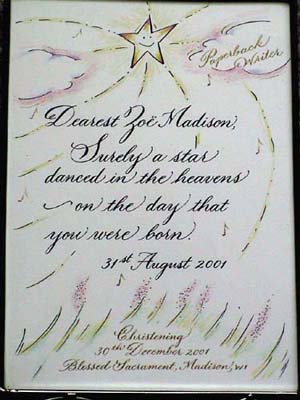 Paperback
Writer
Dearest Zoë Madison,
Surely a star
danced in the heavens
on the day that
you were born.
31st August 2001
Christening
30th December 2001
Blessed Sacrament, Madison, WI